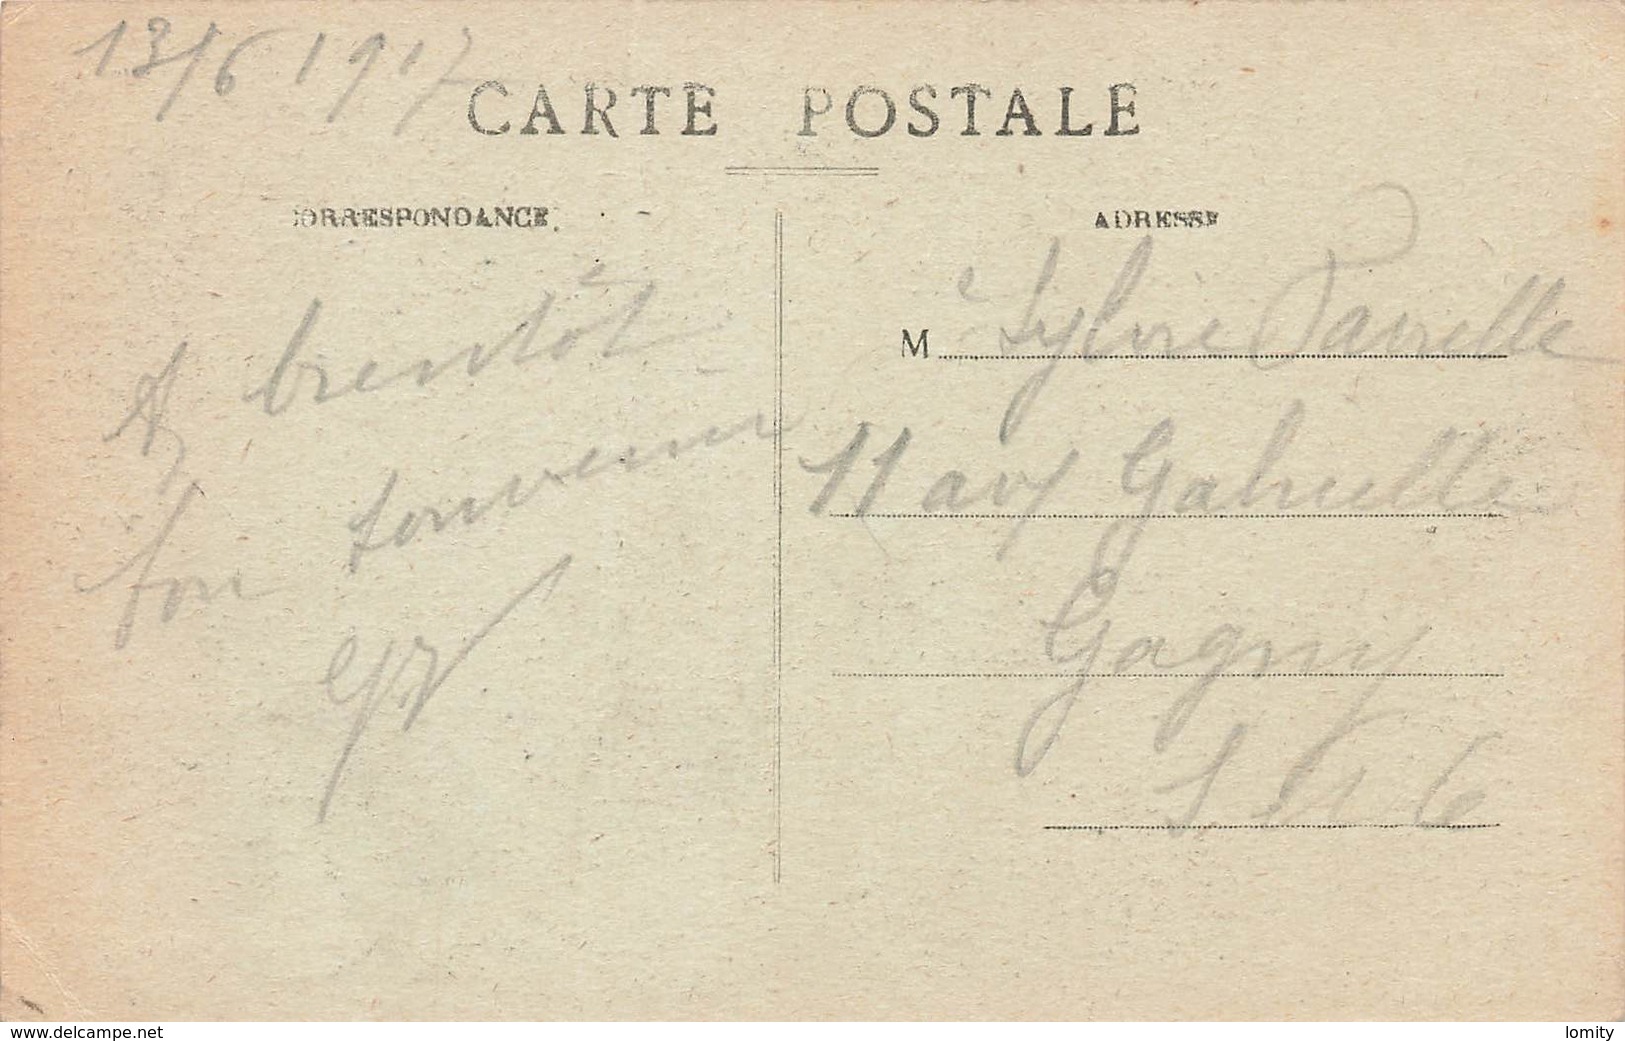 13/6 1917
CARTE POSTALE
CORRESPONDANCE
ADRESSE
A bientôt
bon souvenir
M e Sylvie
11 av Gabrielle
Gagny
S et O
www.delcampe.net
lomity